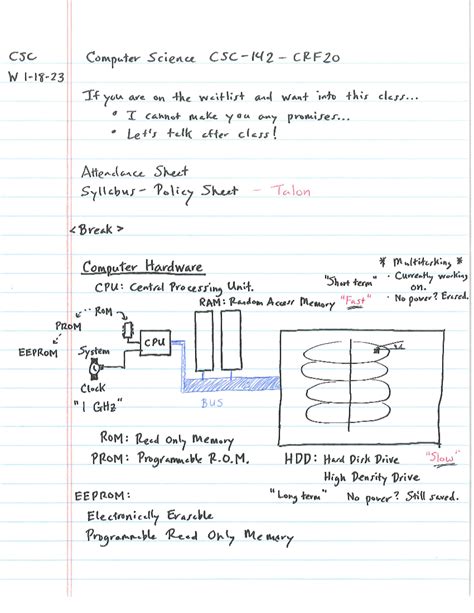 CSC Computer Science CSC-142 - CRF20
W 1-18-23
If you are on the waitlist and want into this class...
• I cannot make you any promises...
• Let's talk after class!
Attendance Sheet
Syllabus - Policy Sheet - Talon
<Break>
Computer Hardware
* Multitasking *
CPU: Central Processing Unit.
"Short term"
• Currently working on.
RAM: Random Access Memory "Fast"
• No power? Erased.
ROM
PROM
EEPROM
System
CPU
Clock
"1 GHz"
BUS
ROM: Read Only Memory
PROM: Programmable R.O.M.
HDD: Hard Disk Drive "Slow"
High Density Drive
EEPROM:
"Long term" No power? Still saved.
Electronically Erasable
Programmable Read Only Memory